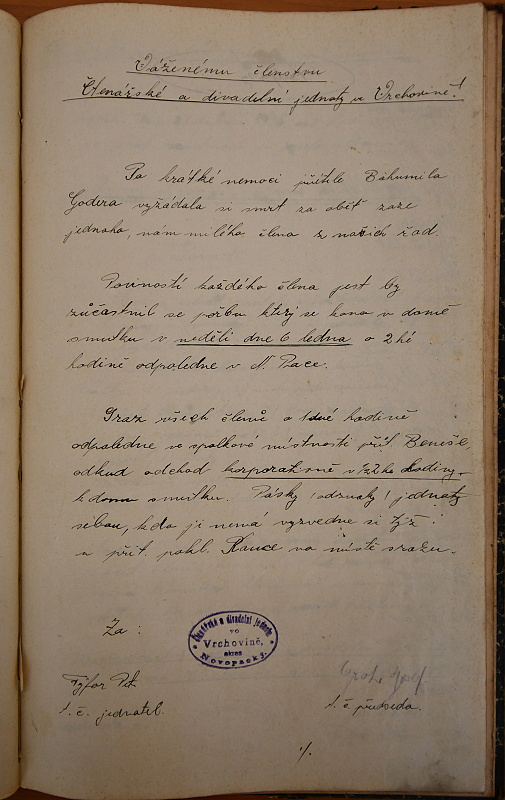 Váženému členstvu
Čtenářské a divadelní jednoty ve Vrchovině!
Po krátké nemoci přítele Bohumila
Godera vyžádala si smrt za oběť zase
jednoho, nám milého člena z našich řad.
Povinností každého člena jest by
zůčastnil se pohřbu který se koná v domě
smutku v neděli dne 6 ledna o 2 hé
hodině odpoledne v N. Pace.
Sraz všech členů o 1dné hodině
odpoledne ve spolkové místnosti přít. Beneše,
odkud odchod korporativně v 1/2 2 hodiny
k domu smutku. Pásky /odznaky/ jednoty
sebou, kdo je nemá vyzvedne si týž
u přít. pokl. na místě srazu.
Za:
Čtenářská a divadelní jednota
ve
Vrchovině,
okres
Novopacký.
t. č. jednatel.
t. č. předseda.